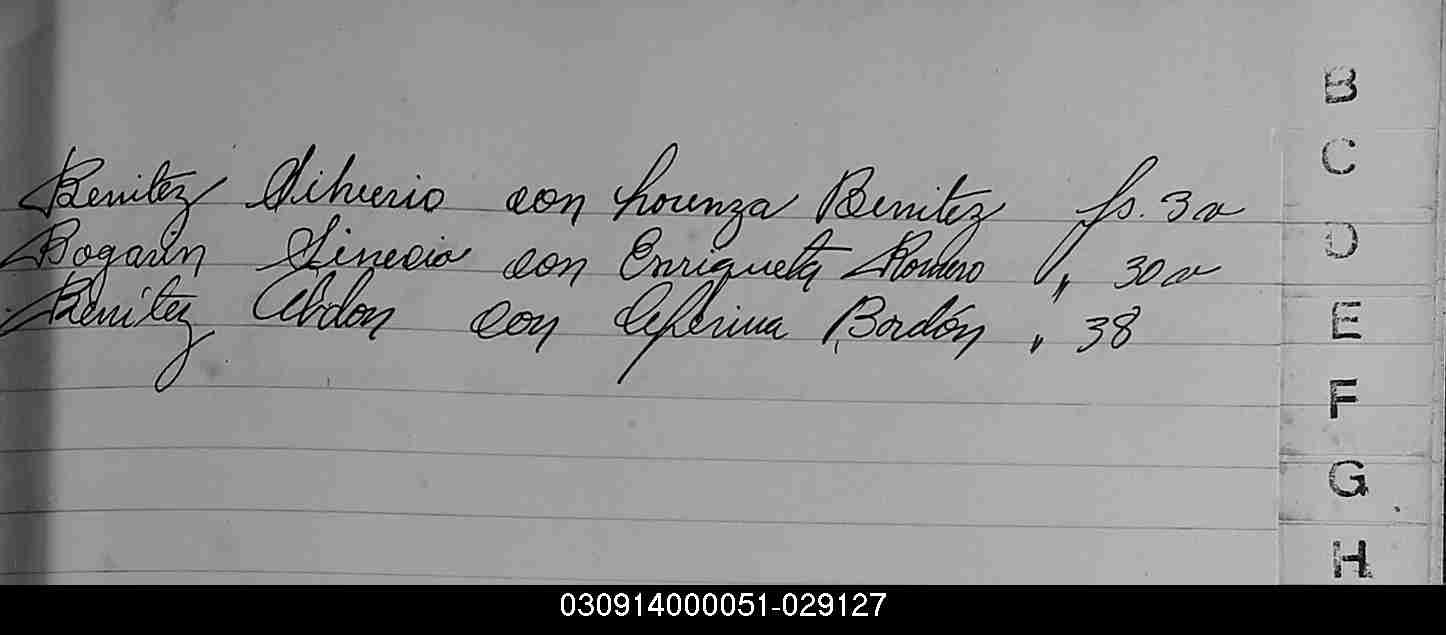 Benitez Silverio con Lorenza Benitez fs. 3 v
Bogarin Sinecio con Enriqueta Romero " 30 v
Benítez Abdon con Ceferina Bordón " 38
B
C
D
E
F
G
H
030914000051-029127